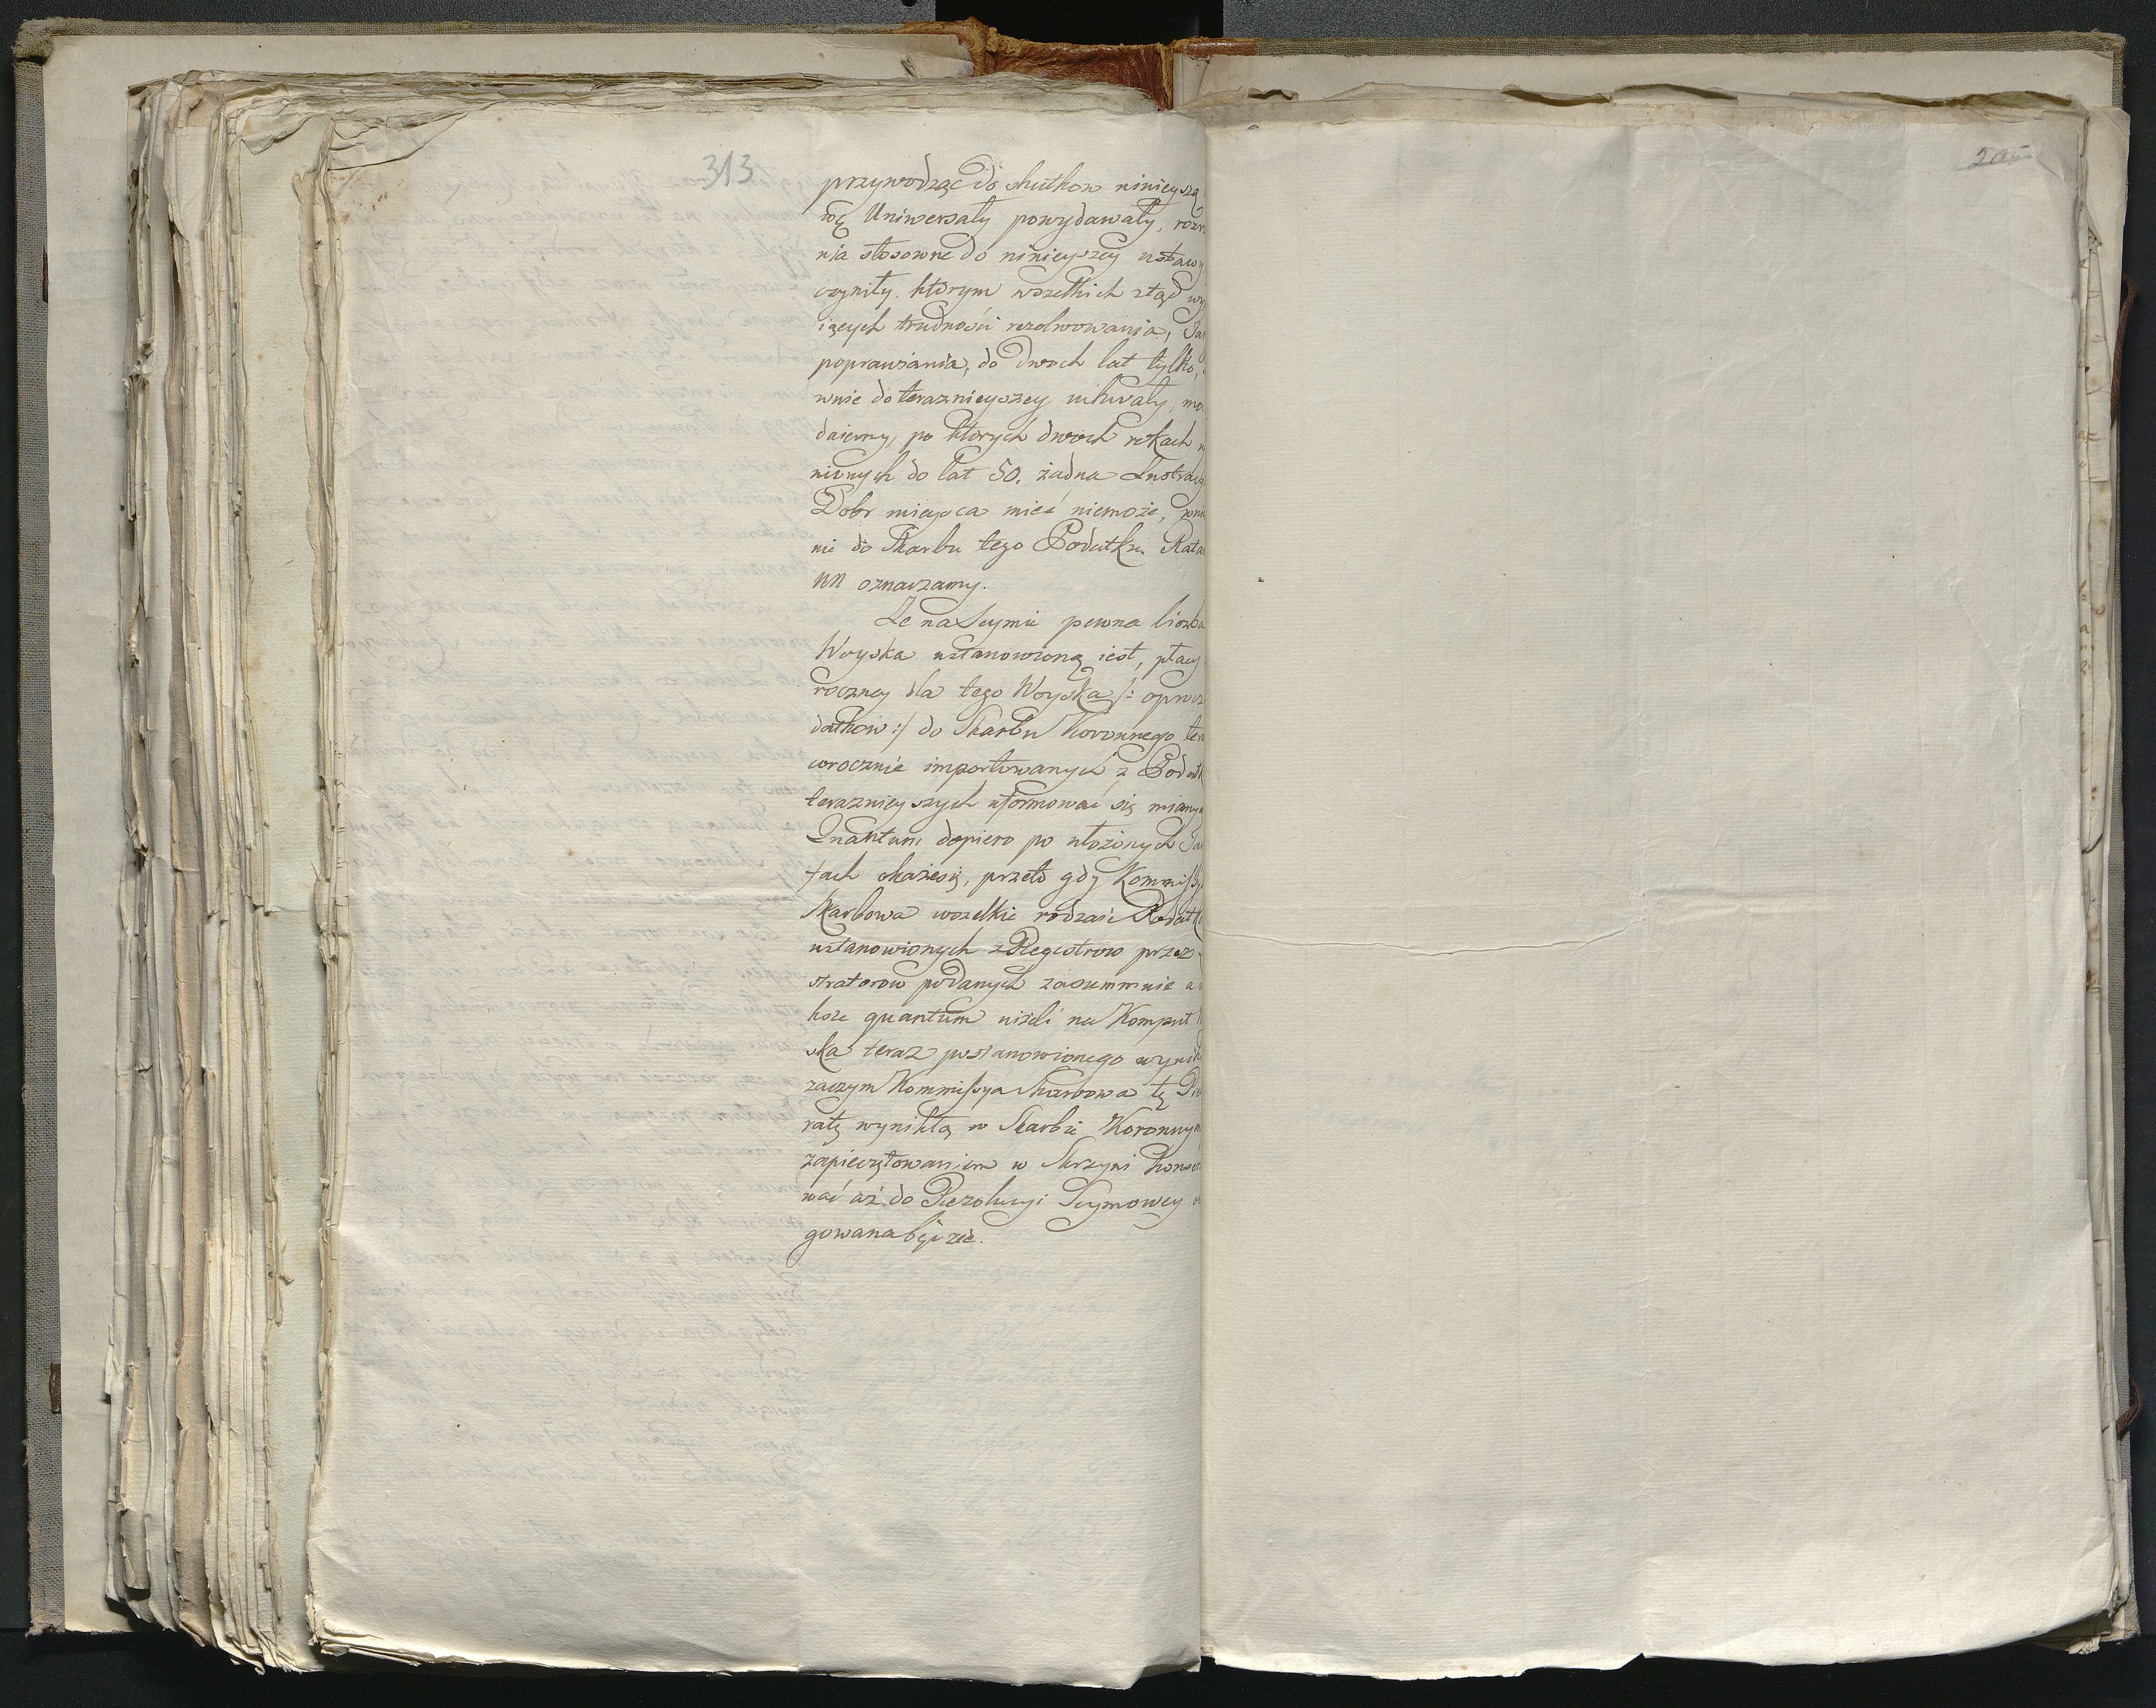 313
przywodząc do skutkow ninieyszą
wę Uniwersały powydawały, rozr
nia stosowne do ninieyszey ustawy
czyniły, którym wszelkich ztąd wy
iących trudności rezolwowania, Ta
poprawiania, do dwoch lat tylko,
wnie do teraznieyszey uchwały, mo
daiemy, po których dwóch rokach
nionych do lat 50. żadna Lustracy
Dobr mieysca mieć niemoże,
nie do Skarbu tego Podatku Rata
NN oznaczamy.
Ze na Seymie pewna liczba
Woyska ustanowioną iest, płacy
roczney dla tego Woyska /: oprocz
datkow :/ do Skarbu Koronnego ter
corocznie importowanych z Podatk
teraznieyszych uformować się mianym
Quantum dopiero po ułożonych Ta
fach okaże się, przeto gdy Kommissy
Skarbowa wszelkie rodzaie Podatk
ustanowionych z Regestrow przez
stratorow podanych zasummuie a
ksze quantum niżeli na Komput
ska teraz postanowionego wynik
zaczym Kommissya Skarbowa tę
ratę wynikłą w Skarbie Koronnym
zapieczętowaniem w Skrzyni konser
wać aż do Rezolucyi Seymowey o
gowana będzie.
205